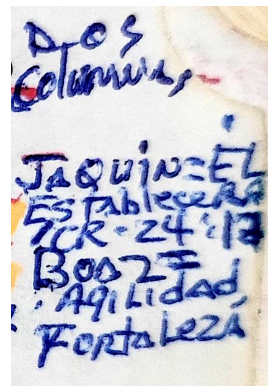 DOS
Columnas,
JAQUIN=EL
EStAblecerá
1CR-24:17
BOAZ=
AgILIdad,
FORtALEZA